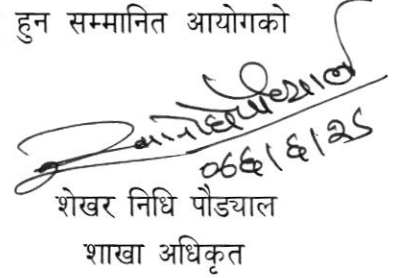 हुन सम्मानित आयोगको
०६६।६।२८
शेखर निधि पौड्याल
शाखा अधिकृत